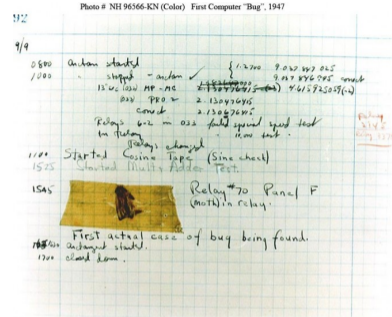 Photo # NH 96566-KN (Color) First Computer "Bug", 1947
92
9/9
0800 antan started
1000 " stopped - antan ✓
{ 1.2700 9.037 847 025
9.037 846 995 conect
13"uc (032) MP-MC 2.130476415 (-3) 4.615925059 (-2)
(033) PRO 2 2.130476415
conect 2.130676415
Relays 6-2 in 033 failed special speed test
in relay " test.
Relays changed
1100 Started Cosine Tape (Sine check)
1525 Started Multi Adder Test.
1545 Relay #70 Panel F
(moth) in relay.
First actual case of bug being found.
antangent started.
1700 closed down.